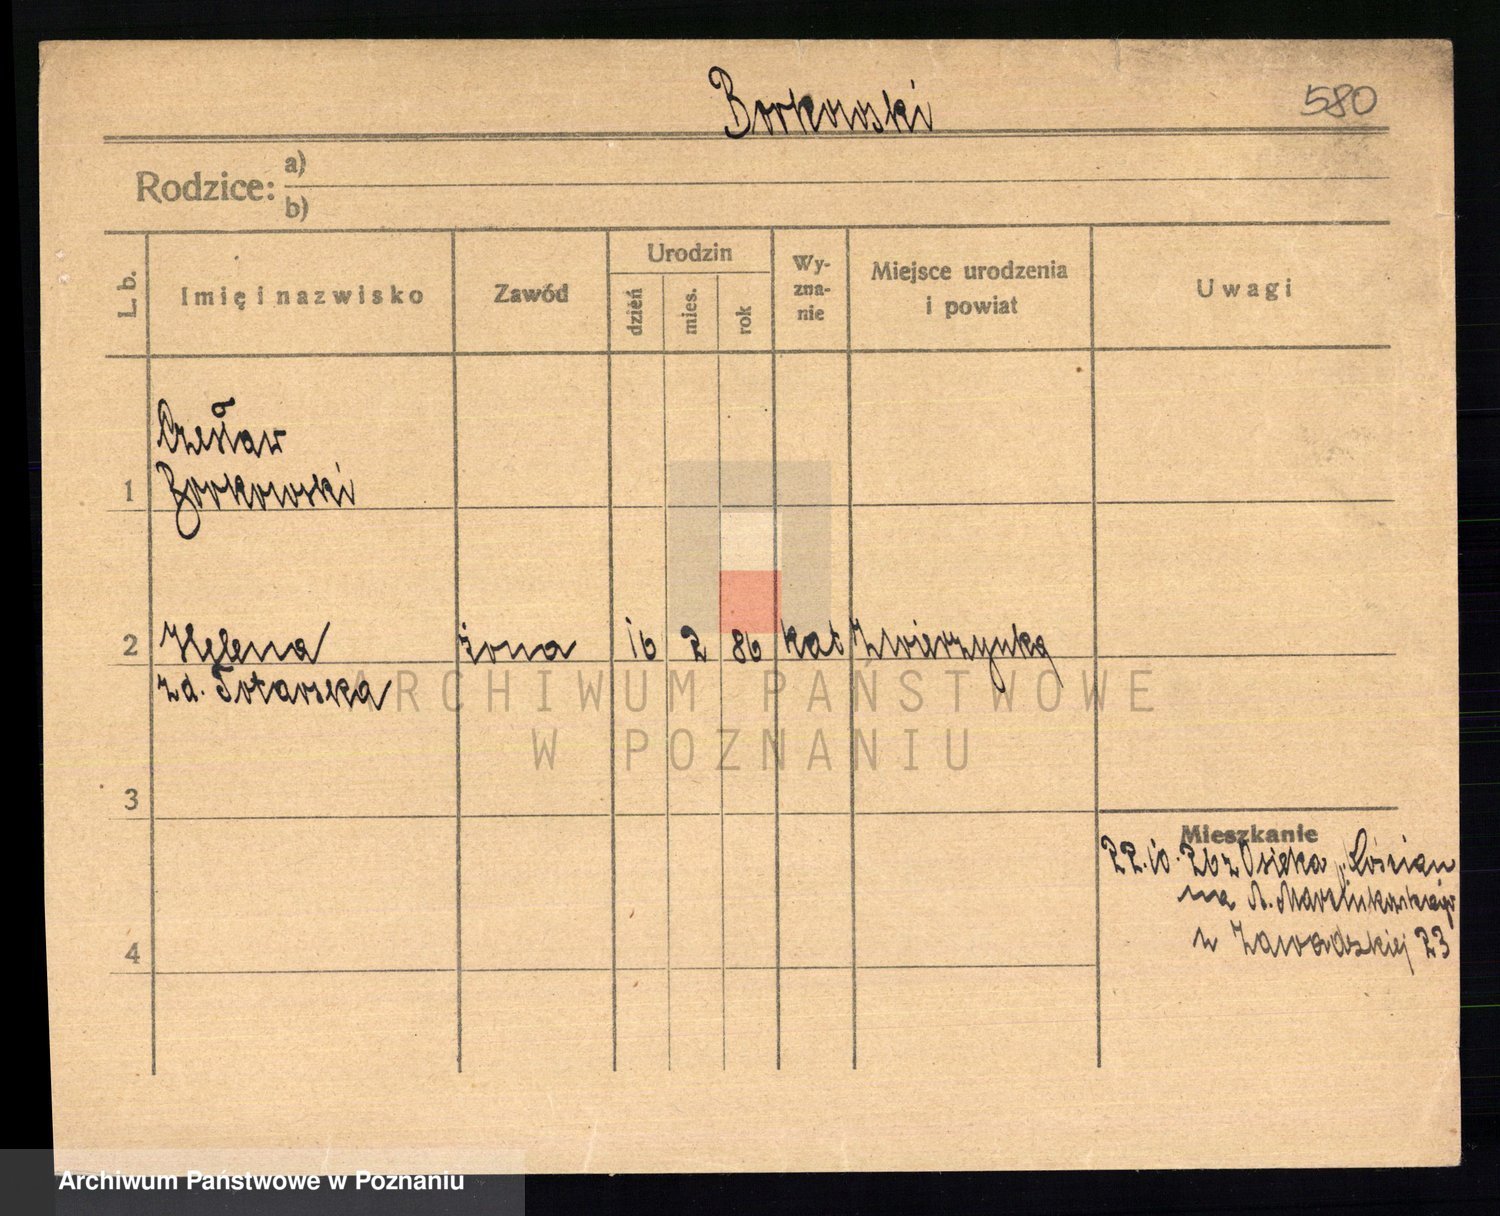 Borkowski
580
Rodzice: a)
b)
L. b.
Imię i nazwisko
Zawód
Urodzin
dzień
mies.
rok
Wy-
zna-
nie
Miejsce urodzenia
i powiat
Uwagi
Czesław
1 Borkowski
2 Helena żona 16 2 86 kat Zwierzynka
zd.
ARCHIWUM PAŃSTWOWE
W POZNANIU
3
Mieszkanie
22.10.26 z Osieka Kościan
na A. Marcinkowskiego
4
z Zawadzkiej 23
Archiwum Państwowe w Poznaniu